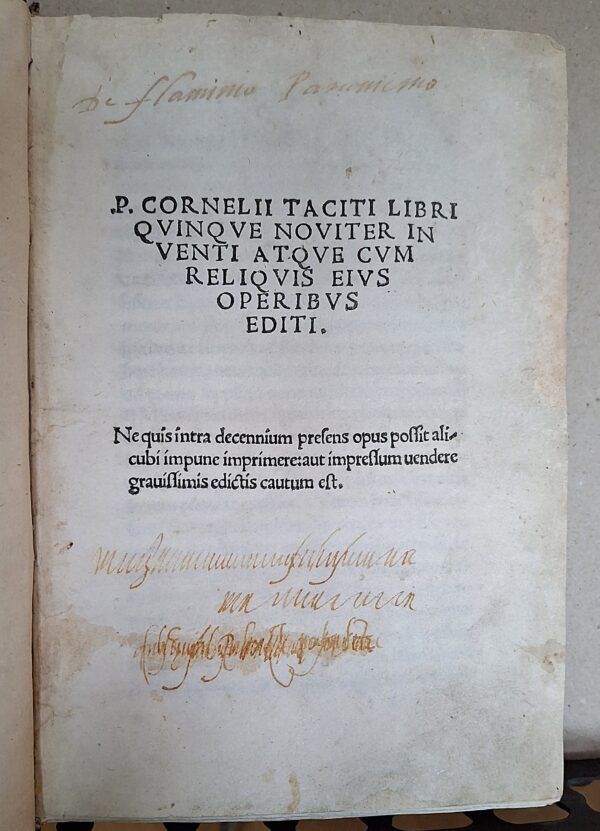 De flaminio
.P. CORNELII TACITI LIBRI
QVINQVE NOVITER IN
VENTI ATQVE CVM
RELIQVIS EIVS
OPERIBVS
EDITI.
Ne quis intra decennium presens opus possit ali-
cubi impune imprimere: aut impressum uendere
grauissimis edictis cautum est.